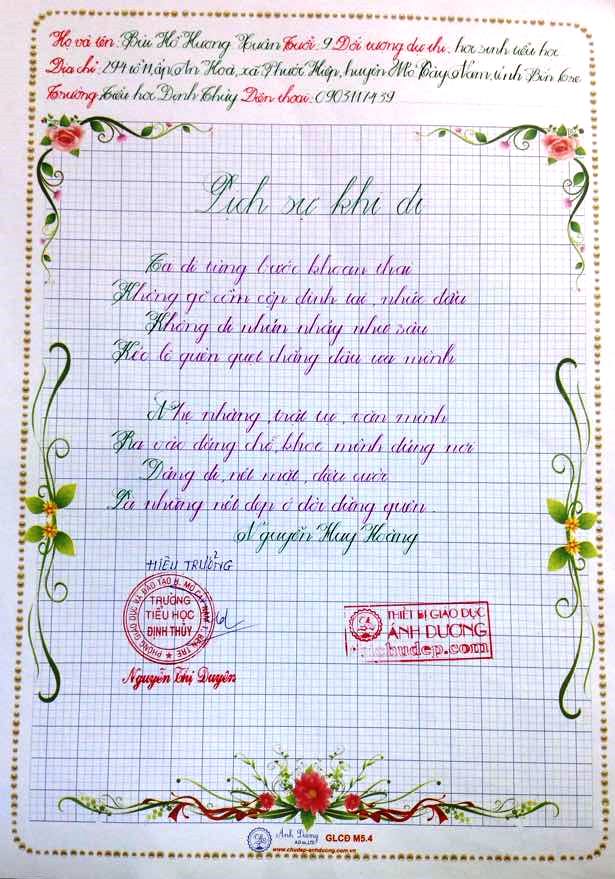 Họ và tên: Bùi Hồ Hương Xuân Tuổi: 9 Đối tượng dự thi: học sinh tiểu học
Địa chỉ: 294 tổ 11, ấp An Hoà, xã Phước Hiệp, huyện Mỏ Cày Nam, tỉnh Bến Tre
Trường: Tiểu học Định Thủy Điện thoại: 0903117439
Lịch sự khi đi
Ta đi từng bước khoan thai
Không gõ cồm cộp đinh tai, nhức đầu
Không đi nhún nhảy như sáu
Kéo lê quèn quẹt chẳng đâu ưa mình
Nhẹ nhàng, trật tự, văn minh
Ra vào đúng chỗ, học mình đúng nơi
Dáng đi, nét mặt, điệu cười
Là những nét đẹp ở đời đừng quên.
Nguyễn Huy Hoàng
HIỆU TRƯỞNG
PHÒNG GIÁO DỤC VÀ ĐÀO TẠO H. MỎ CÀY NAM T. BẾN TRE
TRƯỜNG
TIỂU HỌC
ĐỊNH THỦY
Nguyễn Thị Duyên
THIẾT BỊ GIÁO DỤC
ÁNH DƯƠNG
Ánh Dương
GLCĐ M5.4
www.chudep-anhduong.com.vn